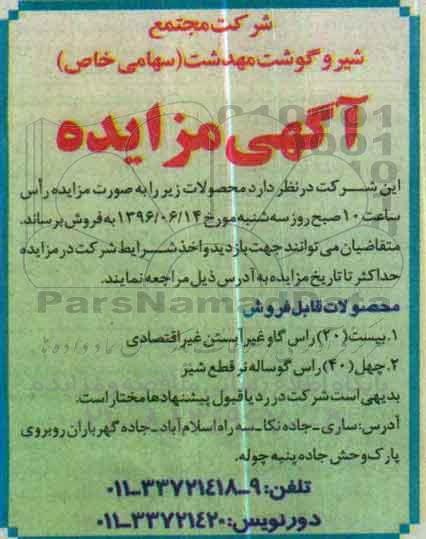 شرکت مجتمع
شیر و گوشت مهدشت (سهامی خاص)
آگهی مزایده
این شرکت در نظر دارد محصولات زیر را به صورت مزایده رأس
ساعت ۱۰ صبح روز سه شنبه مورخ ۱۳۹۶/۰۶/۱۴ به فروش برساند.
متقاضیان می توانند جهت بازدید و اخذ شرایط شرکت در مزایده
حداکثر تا تاریخ مزایده به آدرس ذیل مراجعه نمایند.
ParsNamadData
محصولات قابل فروش
۱. بیست (۲۰) راس گاو غیر آبستن غیر اقتصادی
۲. چهل (۴۰) راس گوساله نر قطع شیر
بدیهی است شرکت در رد یا قبول پیشنهادها مختار است.
آدرس: ساری_جاده نکا_سه راه اسلام آباد_جاده گهرباران روبروی
پارک وحش جاده پنبه چوله.
تلفن: ۹_۳۳۷۲۱۴۱۸_۰۱۱
دورنویس: ۳۳۷۲۱۴۲۰_۰۱۱